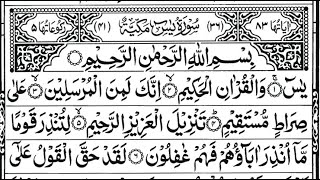 اٰیَاتُهَا ٨٣ (٣٦) سُوْرَةُ یٰسٓ مَكِّیَّةٌ (٤١) رُكُوْعَاتُهَا ٥
بِسْمِ اللّٰهِ الرَّحْمٰنِ الرَّحِیْمِ
یٰسٓ ۚ﴿۱﴾ وَ الْقُرْاٰنِ الْحَكِیْمِ ۙ﴿۲﴾ اِنَّكَ لَمِنَ الْمُرْسَلِیْنَ ۙ﴿۳﴾ عَلٰی
صِرَاطٍ مُّسْتَقِیْمٍ ؕ﴿۴﴾ تَنْزِیْلَ الْعَزِیْزِ الرَّحِیْمِ ۙ﴿۵﴾ لِتُنْذِرَ قَوْمًا
مَّاۤ اُنْذِرَ اٰبَآؤُهُمْ فَهُمْ غٰفِلُوْنَ ﴿۶﴾ لَقَدْ حَقَّ الْقَوْلُ عَلٰۤی